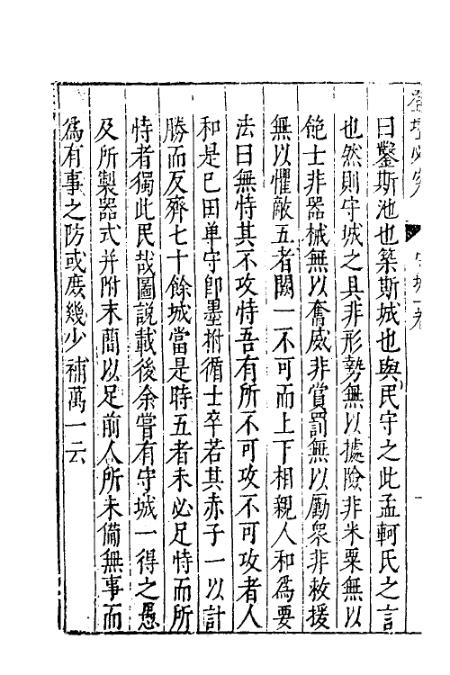 曰鑿斯池也築斯城也與民守之此孟軻氏之言
也然則守城之具非形勢無以據險非米粟無以
飽士非器械無以奮威非賞罰無以勵衆非救援
無以懼敵五者闕一不可而上下相親人和爲要
法曰無恃其不攻恃吾有所不可攻不可攻者人
和是已田单守即墨拊循士卒若其赤子一以計
勝而反齊七十餘城當是時五者未必足恃而所
恃者獨此民哉圖説載後余嘗有守城一得之愚
及所製器式并附末簡以足前人所未備無事而
爲有事之防或庶幾少補萬一云